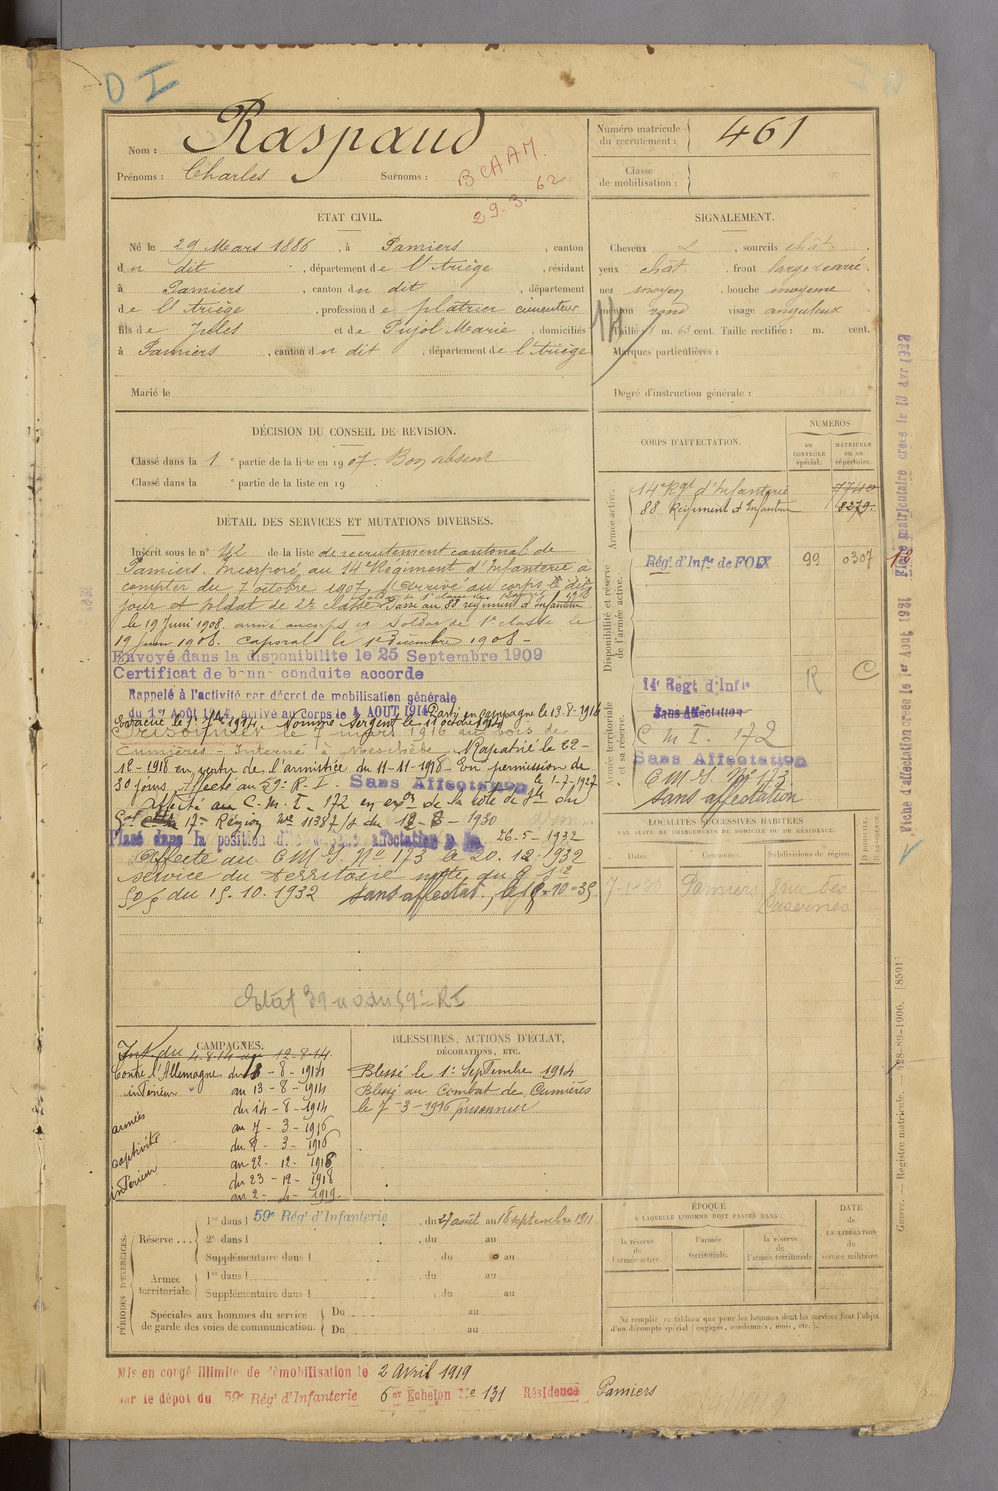 D I
Nom : Raspaud
Prénoms : Charles Surnoms :
BCAAM.
29.3.62
Numéro matricule du recrutement : 461
Classe de mobilisation :
ÉTAT CIVIL.
Né le 29 Mars 1886, à Pamiers, canton
du dit, département de l'Ariège, résidant
à Pamiers, canton du dit, département
de l'Ariège, profession de plâtrier cimenteur
fils de Jules et de Pujol Marie, domiciliés
à Pamiers, canton du dit, département de l'Ariège
Marié le
SIGNALEMENT.
Cheveux sourcils chât.
yeux chât. front large & carré.
nez moyen, bouche moyenne
menton rond visage anguleux
Taille : 1 m. 63 cent. Taille rectifiée : m. cent.
Marques particulières :
Degré d'instruction générale :
DÉCISION DU CONSEIL DE REVISION.
Classé dans la 1e partie de la liste en 1907. Bon absent
Classé dans la e partie de la liste en 19
DÉTAIL DES SERVICES ET MUTATIONS DIVERSES.
Inscrit sous le n° 42 de la liste de recrutement cantonal de
Pamiers. Incorporé au 14e Régiment d'Infanterie à
compter du 7 octobre 1907. Arrivé au corps le dit
jour et soldat de 2e classe. Passé au 88 régiment d'infanterie
le 19 Juin 1908, arrivé au corps et soldat de 1e classe le
19 juin 1908. Caporal le 1er décembre 1908 -
Envoyé dans la disponibilite le 25 Septembre 1909
Certificat de bonne conduite accorde
Rappelé à l'activité par décret de mobilisation générale
du 1er Août 1914, arrivé au corps le 4 AOUT 1914 Parti en campagne le 13-8-1914
Evacué le 1-7bre 1914. Nommé Sergent le 11 octobre 1914
Prisonnier le 7 mars 1916 au bois de
Cumières - Interné à Meschède. Rapatrié le 22-
12-1918 en vertu de l'armistice du 11-11-1918. En permission de
30 jours. Affecté au 59e R.I. Sans Affectation le 1-7-1927
Affecté au C.M.I. 172 en exon de la note de Mr du
Gal 17e Région No 11387/s du 12-8-1930
Placé dans la position dite sans affectation 26-5-1932
Affecté au CMI. No 173 le 20.12.1932
service du territoire
du 15.10.1932 sans affectat. le 15-10-35
CORPS D'AFFECTATION.
NUMÉROS
AU CONTRÔLE spécial.
MATRICULE OU AU répertoire.
Armée active.
14e Rgt d'Infanterie 7740
88 Régiment d'Infanterie 8279
Disponibilité et réserve de l'armée active.
Régt d'Infie de FOIX 99 0307
R C
Armée territoriale et sa réserve.
14e Regt d'Infie
Sans Affectation
C m I. 172
Sans Affectation
C M I. No 173
Sans affectation
LOCALITÉS SUCCESSIVES HABITÉES
PAR SUITE DE CHANGEMENTS DE DOMICILE OU DE RÉSIDENCE.
Dates. Communes. Subdivisions de région. D DOMICILE. R RÉSIDENCE.
7-1-20 Pamiers rue des Casernes
CAMPAGNES.
Int. du 4-8-14 au 12-8-14
Contre l'Allemagne du 13-8-1914
intérieur au 13-8-1914
du 14-8-1914
armées au 7-3-1916
captivité du 8-3-1916
au 22-12-1918
intérieur du 23-12-1918
au 2-4-1919
BLESSURES, ACTIONS D'ÉCLAT, DÉCORATIONS, ETC.
Blessé le 1er Septembre 1914
Blessé au Combat de Cumières
le 7-3-1916 prisonnier
PÉRIODES D'EXERCICES.
Réserve... 1re dans l 59e Régt d'Infanterie, du 27 août au 18 septembre 1911
2e dans l, du au
Supplémentaire dans l, du au
Armée territoriale. 1re dans l, du au
Supplémentaire dans l, du au
Spéciales aux hommes du service de garde des voies de communication. Du au
Du au
ÉPOQUE
A LAQUELLE L'HOMME DOIT PASSER DANS :
la réserve de l'armée active
l'armée territoriale.
la réserve de l'armée territoriale
DATE de LA LIBÉRATION du service militaire.
Ne remplir ce tableau que pour les hommes dont les services font l'objet
d'un décompte spécial (engagés, condamnés, omis, etc.).
Mis en congé illimité de démobilisation le 2 Avril 1919
par le dépot du 59e Régt d'Infanterie 6er Echelon No 131 Résidence Pamiers
Fiche d'affectation créée le 1er Aout 1931
Fiche matriculaire créée le 13 Avr 1932
Guerre. — Registre matricule. 428-89-1906. [8591]